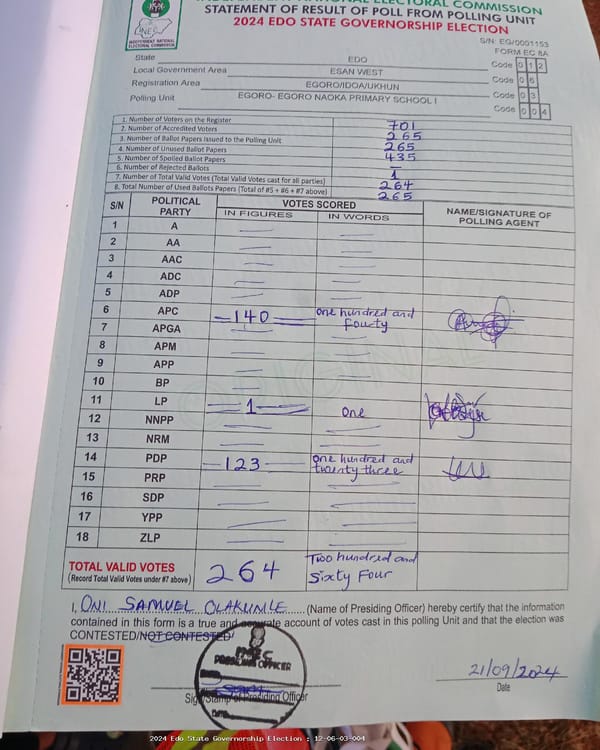 INDEPENDENT NATIONAL ELECTORAL COMMISSION
STATEMENT OF RESULT OF POLL FROM POLLING UNIT
2024 EDO STATE GOVERNORSHIP ELECTION
INEC
INDEPENDENT NATIONAL ELECTORAL COMMISSION
S/N: EG/0001153
FORM EC 8A
State EDO Code 0 1 2
Local Government Area ESAN WEST Code 0 6
Registration Area EGORO/IDOA/UKHUN Code 0 3
Polling Unit EGORO- EGORO NAOKA PRIMARY SCHOOL I Code 0 0 4
1. Number of Voters on the Register 701
2. Number of Accredited Voters 265
3. Number of Ballot Papers Issued to the Polling Unit 265
4. Number of Unused Ballot Papers 435
5. Number of Spoiled Ballot Papers —
6. Number of Rejected Ballots 1
7. Number of Total Valid Votes (Total Valid Votes cast for all parties) 264
8. Total Number of Used Ballots Papers (Total of #5 + #6 + #7 above) 265
S/N POLITICAL PARTY VOTES SCORED NAME/SIGNATURE OF POLLING AGENT
IN FIGURES IN WORDS
1 A
2 AA
3 AAC
4 ADC
5 ADP
6 APC 140 one hundred and fourty
7 APGA
8 APM
9 APP
10 BP
11 LP 1 One
12 NNPP
13 NRM
14 PDP 123 one hundred and twenty three
15 PRP
16 SDP
17 YPP
18 ZLP
TOTAL VALID VOTES 264 Two hundred and Sixty Four
(Record Total Valid Votes under #7 above)
I, ONI SAMUEL OLAKUNLE (Name of Presiding Officer) hereby certify that the information
contained in this form is a true and accurate account of votes cast in this polling Unit and that the election was
CONTESTED/NOT CONTESTED/
INEC
PRESIDING OFFICER
Sign/Stamp of Presiding Officer
21/09/2024
Date
2024 Edo State Governorship Election : 12-06-03-004